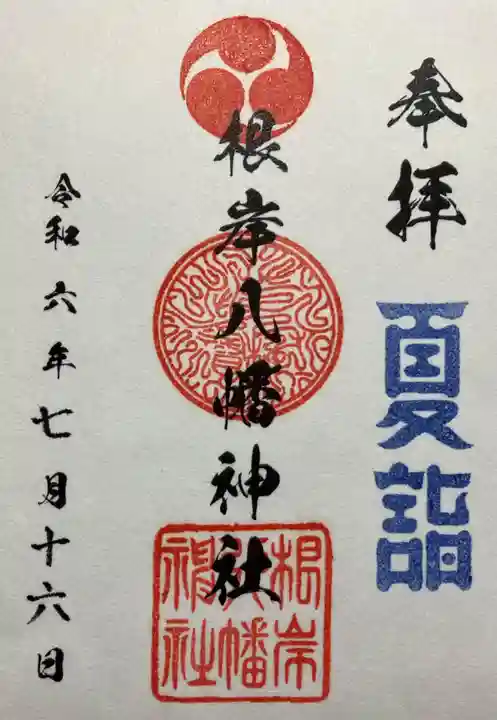 奉拝
夏詣
根岸八幡神社
根岸八幡神社
令和六年七月十六日